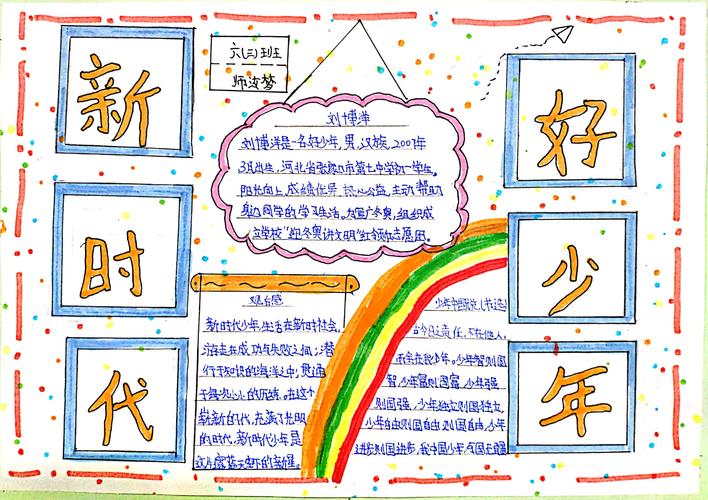 新
时
代
好
少
年
六(三)班
刘博洋
刘博洋是一名好少年,男,汉族,2007年
3月出生,河北省张家口市第七中学初一学生。
阳光向上,成绩优异,热心公益,主动帮助
身边同学的学习生活。为推广冬奥,组织成
立学校“迎冬奥讲文明”红领巾志愿团。
观后感
新时代少年,生活在新时社会,
游走在成功与失败之间;潜
行于知识的海洋之中,
于每次小小的历练。在这个
崭新的时代,充满了光明
的时代,新时代少年是
这片蔚蓝天空下的新星。
少年中国说(节选)
故今日之责任,不在他人,
而全在我少年。少年智则国
智,少年富则国富,少年强
则国强,少年独立则国独立,
少年自由则国自由,少年
进步则国进步,我中国少年,与国无疆